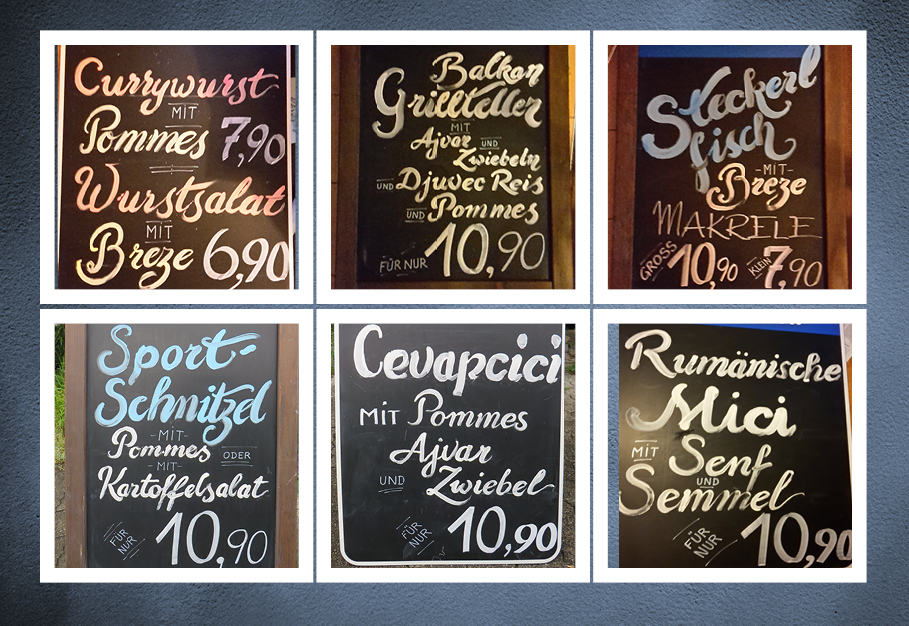 Currywurst
MIT
Pommes 7,90
Wurstsalat
MIT
Breze 6,90
Balkan
Grillteller
MIT
Ajvar UND
Zwiebeln
UND Djuvec Reis
UND Pommes
FÜR NUR 10,90
Steckerl
fisch
-MIT-
Breze
MAKRELE
GROSS 10,90 KLEIN 7,90
Sport-
Schnitzel
-MIT-
Pommes ODER
-MIT-
Kartoffelsalat
FÜR NUR 10,90
Cevapcici
MIT Pommes
Ajvar
UND Zwiebel
FÜR NUR 10,90
Rumänische
Mici
MIT Senf
UND
Semmel
FÜR NUR 10,90